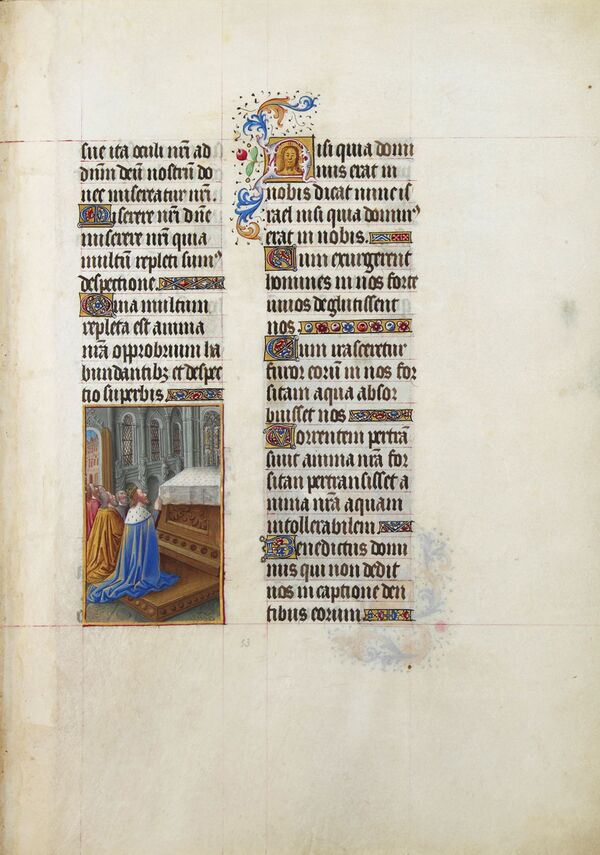 sue ita oculi nr̄i ad
dn̄m deū nostrū do
nec misereatur nr̄i.
Miserere nr̄i dn̄e
miserere nr̄i quia
multū repleti sumꝰ
despectione.
Quia multum
repleta est anima
nr̄a opprobrium ha
bundantibꝫ et despec
tio superbis
Nisi quia domi
nus erat in
nobis dicat nunc is
rael nisi quia dominꝰ
erat in nobis.
Cum exurgerent
homines in nos forte
vivos deglutissent
nos.
Cum irasceretur
furor eorū in nos for
sitam aqua absor
buisset nos
Torrentem pertrā
sivit anima nr̄a for
sitan pertransisset a
nima nr̄a aquam
intollerabilem
Benedictus domi
nus qui non dedit
nos in captione den
tibus eorum
53